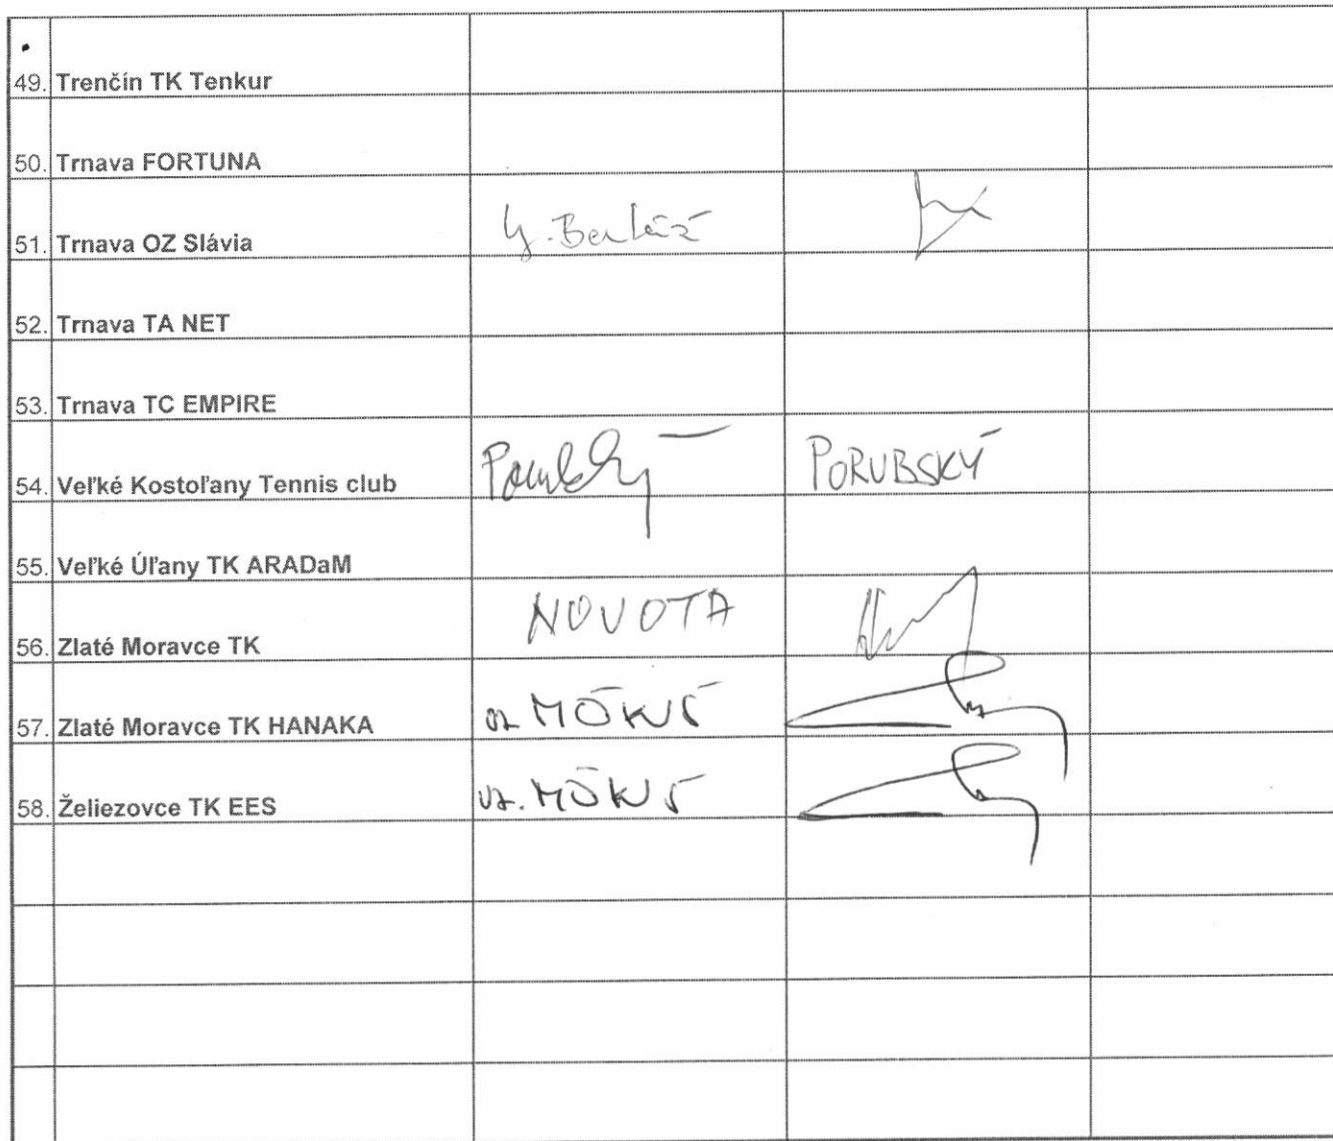 49. Trenčín TK Tenkur
50. Trnava FORTUNA
51. Trnava OZ Slávia
52. Trnava TA NET
53. Trnava TC EMPIRE
54. Veľké Kostoľany Tennis club PORUBSKÝ
55. Veľké Úľany TK ARADaM
56. Zlaté Moravce TK NOVOTA
57. Zlaté Moravce TK HANAKA
58. Želiezovce TK EES